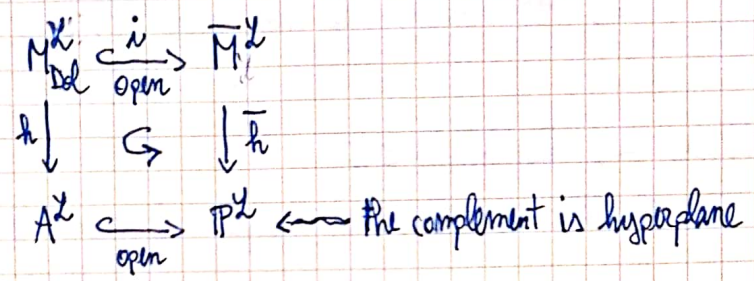 M^𝓛_Dol ↪ i open → M̄^𝓛
h ↓ ↺ ↓ h̄
A^𝓛 ↪ open → ℙ^𝓛 ← the complement is hyperplane